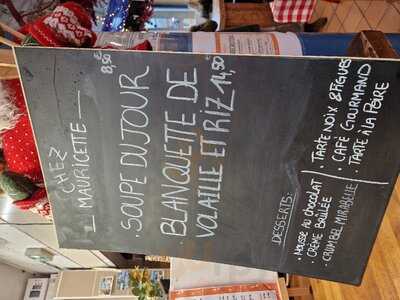 CHEZ
MAURICETTE
. SOUPE DU JOUR 8,50€
. BLANQUETTE DE
VOLAILLE ET RIZ 14,50€
DESSERTS:
. MOUSSE AU chocolAT
. CRÈME BRÛLÉE
. CRUMBEL MIRABELLE
. TARTE NOIX & FIGUES
. CAFÉ GOURMAND
. TARTE À LA POIRE